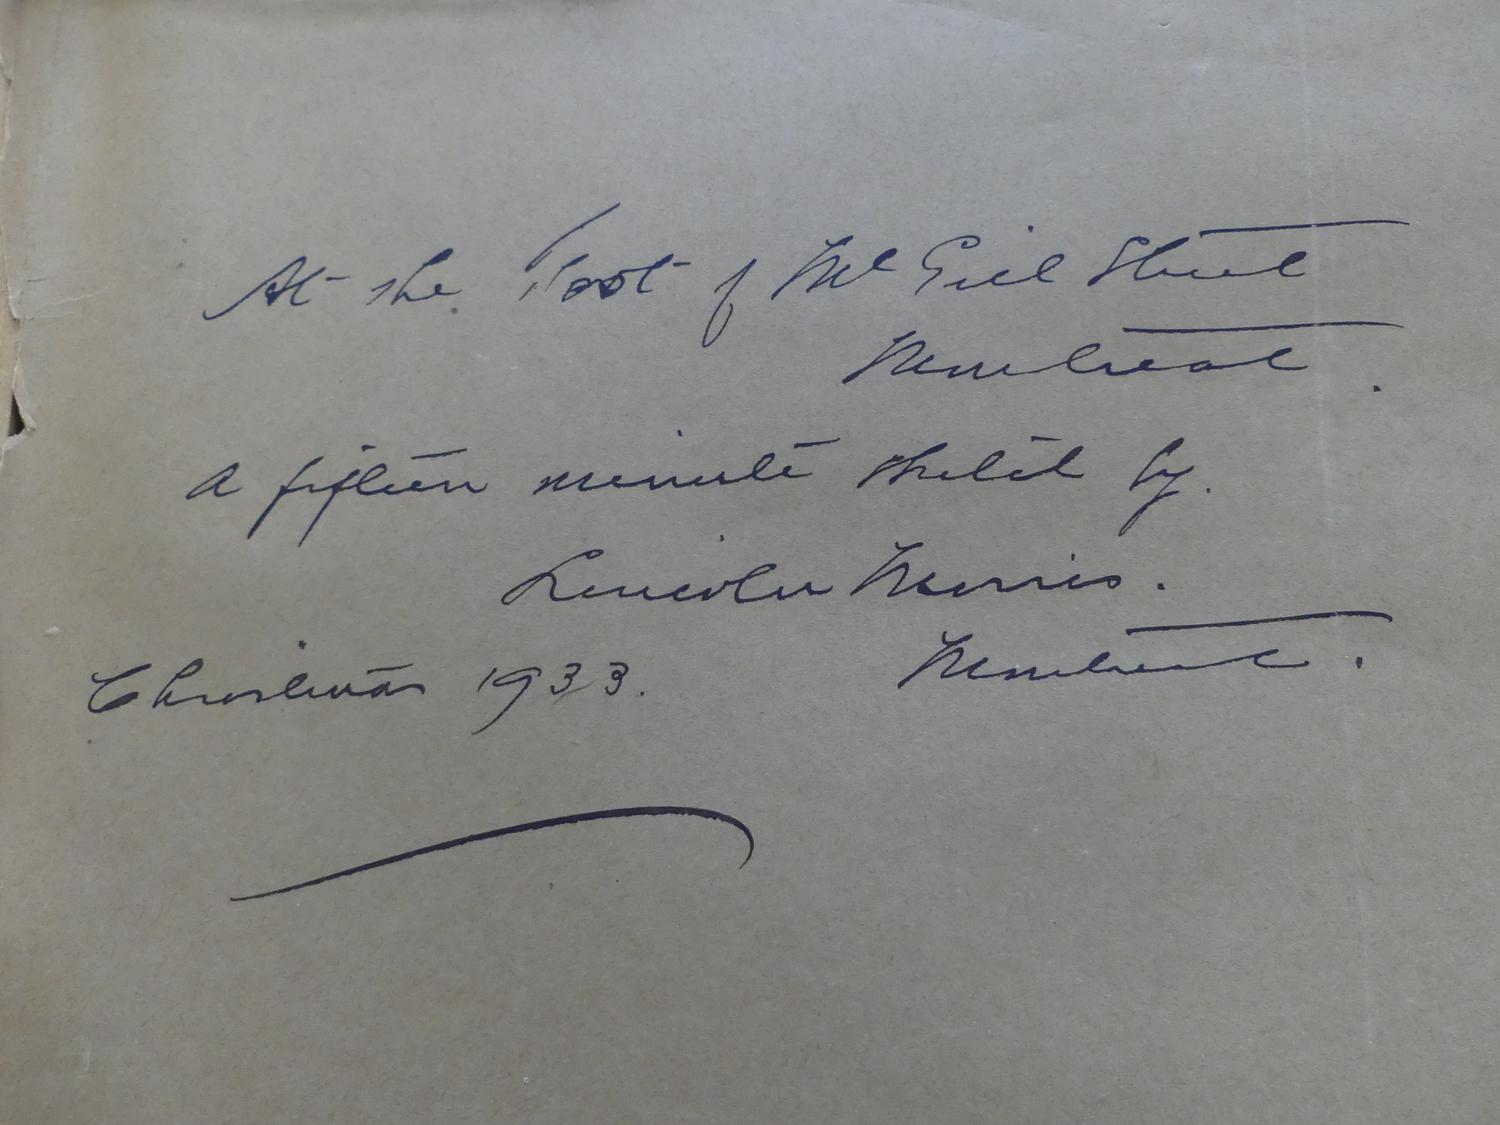 At the Foot of McGill Street
Montreal.
A fifteen minute sketch by.
Lincoln Morris.
Montreal.
Christmas 1933.